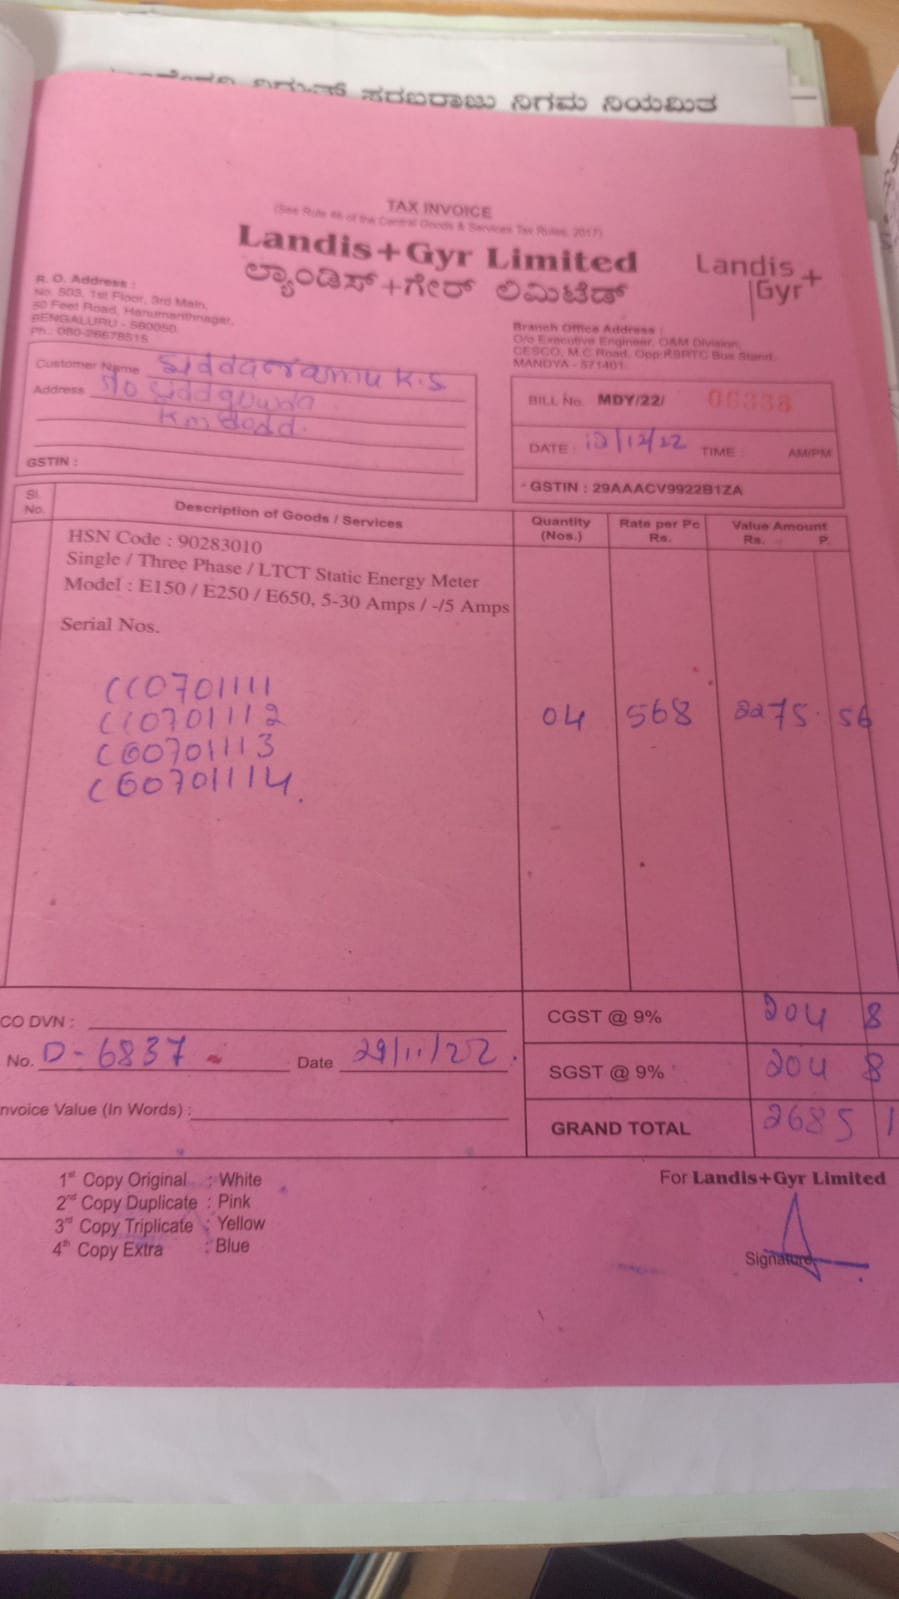 ಸರಬರಾಜು ನಿಗಮ ನಿಯಮಿತ
TAX INVOICE
(See Rule 46 of the Central Goods & Services Tax Rules, 2017)
Landis+Gyr Limited
ಲ್ಯಾಂಡಿಸ್+ಗೇರ್ ಲಿಮಿಟೆಡ್
Landis
Gyr+
R. O. Address :
No. 503, 1st Floor, 3rd Main,
50 Feet Road, Hanumanthnagar,
BENGALURU - 560050.
Ph.: 080-26678515
Branch Office Address :
O/o Executive Engineer, O&M Division,
CESCO, M.C. Road, Opp.KSRTC Bus Stand,
MANDYA - 571401.
Customer Name Siddaramu K.S
Address S/o Siddegowda
K m dodd.
GSTIN :
BILL No. MDY/22/ 06338
DATE : 12/22 TIME : AM/PM
GSTIN : 29AAACV9922B1ZA
Sl. No.
Description of Goods / Services
Quantity (Nos.)
Rate per Pc Rs.
Value Amount Rs. P.
HSN Code : 90283010
Single / Three Phase / LTCT Static Energy Meter
Model : E150 / E250 / E650, 5-30 Amps / -/5 Amps
Serial Nos.
CC0701111
CC0701112 04 568 2275. 56
0701113
0701114.
CO DVN :
No. D-6837 Date 29/11/22.
nvoice Value (In Words) :
CGST @ 9% 204 8
SGST @ 9% 204 8
GRAND TOTAL 2685 1
1st Copy Original : White
2nd Copy Duplicate : Pink
3rd Copy Triplicate : Yellow
4th Copy Extra : Blue
For Landis+Gyr Limited
Signature